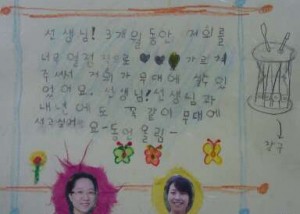 선생님! 3개월동안 저희를
너무 열정 으로 가르쳐
주셔서 저희가 무대에 설수 있
었어요. 선생님! 선생님과
내년에도 꼭 같이 무대에
서고싶어요 -동연 올림-
장구